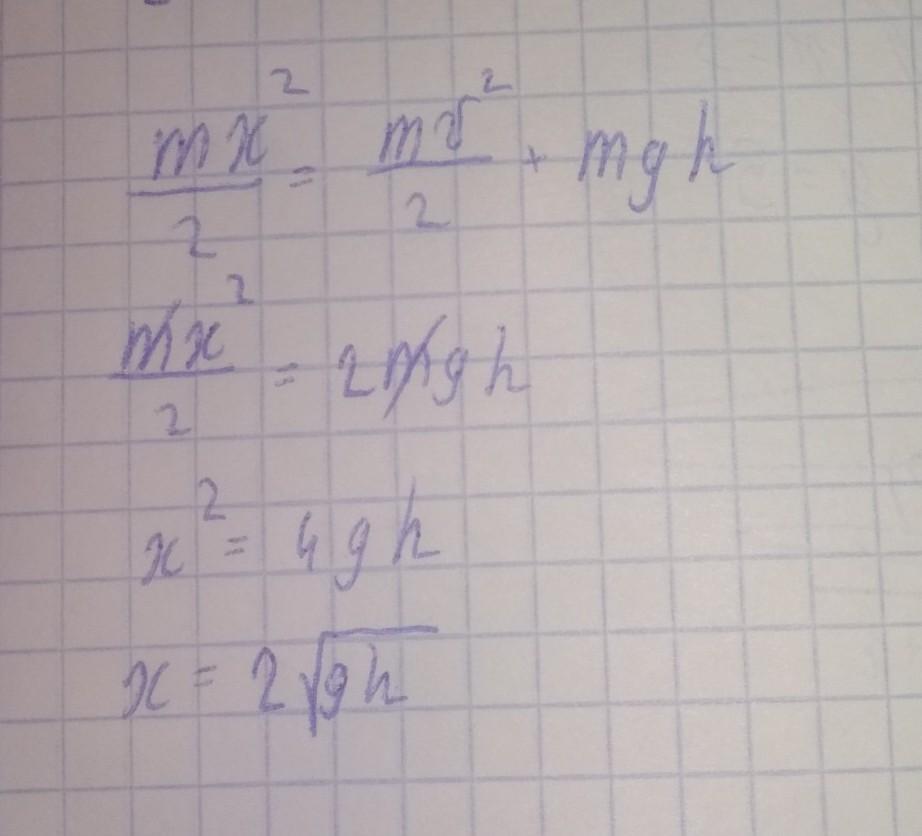 mx²/2 = mv²/2 + mgh
mx²/2 = 2mgh
x² = 4gh
x = 2√gh